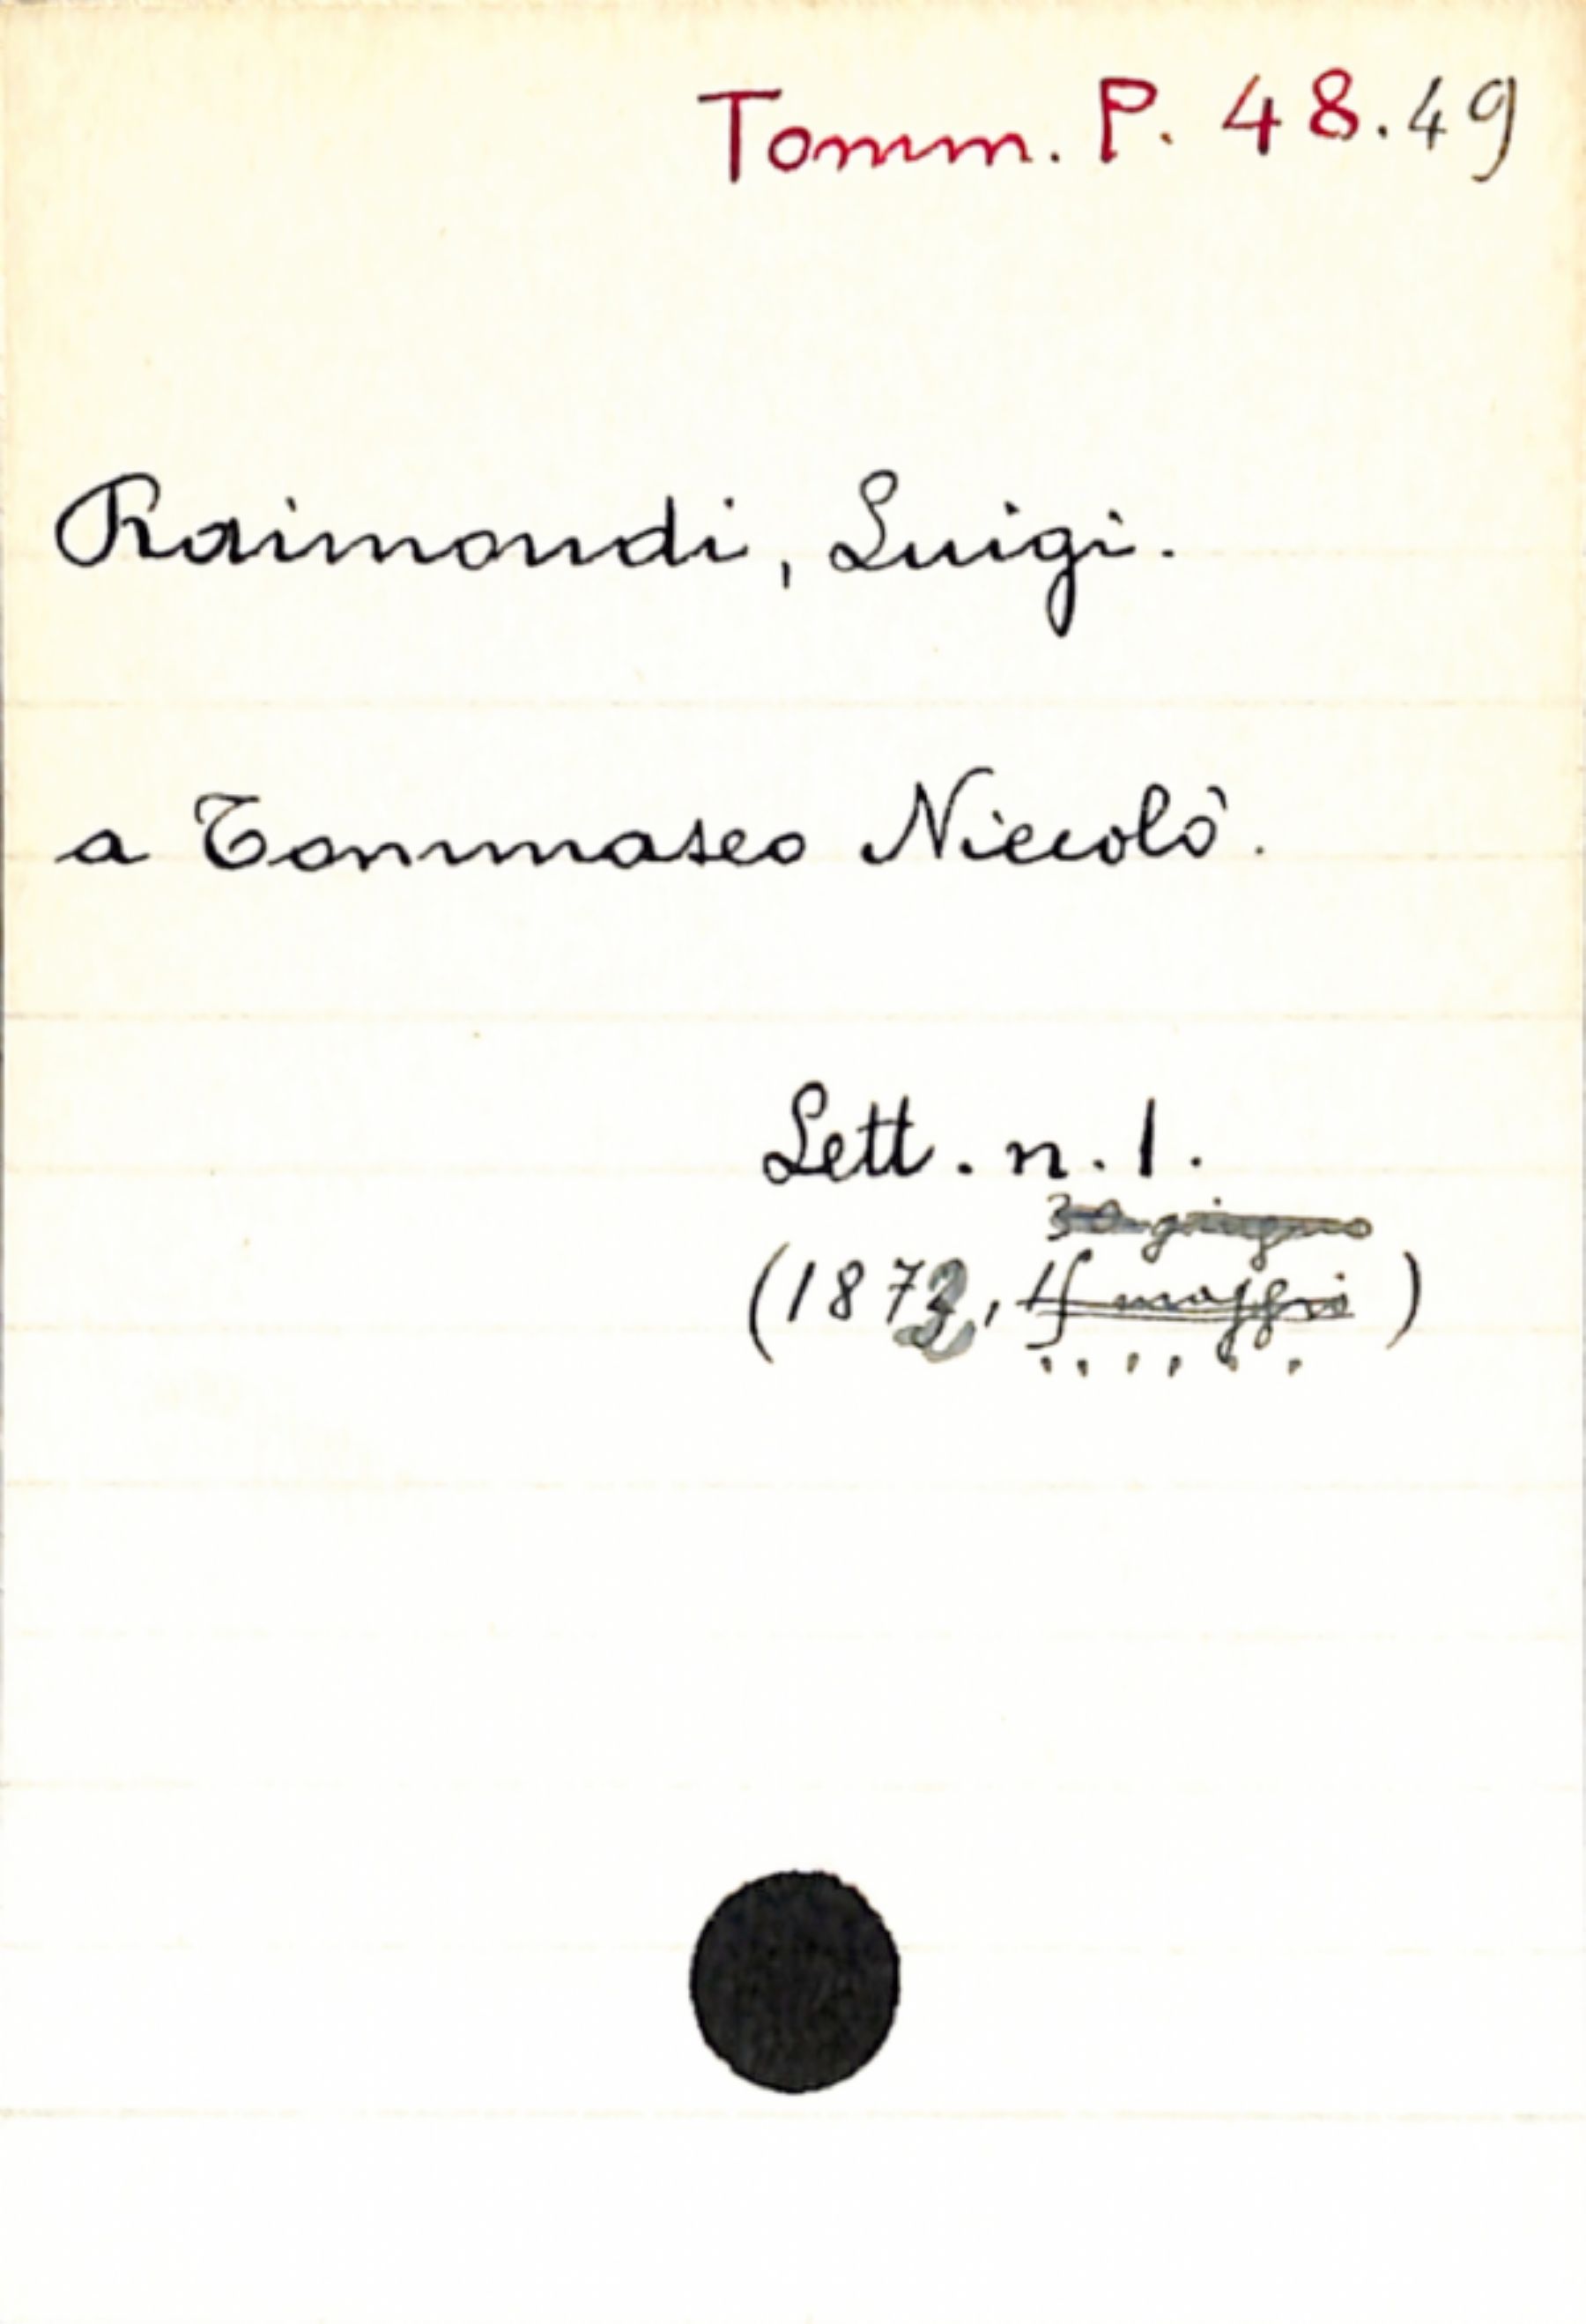 Tomm. P. 48.49
Raimondi, Luigi.
a Tommaseo Niccolò.
Lett. n. 1.
30 giugno
(1872, maggio)